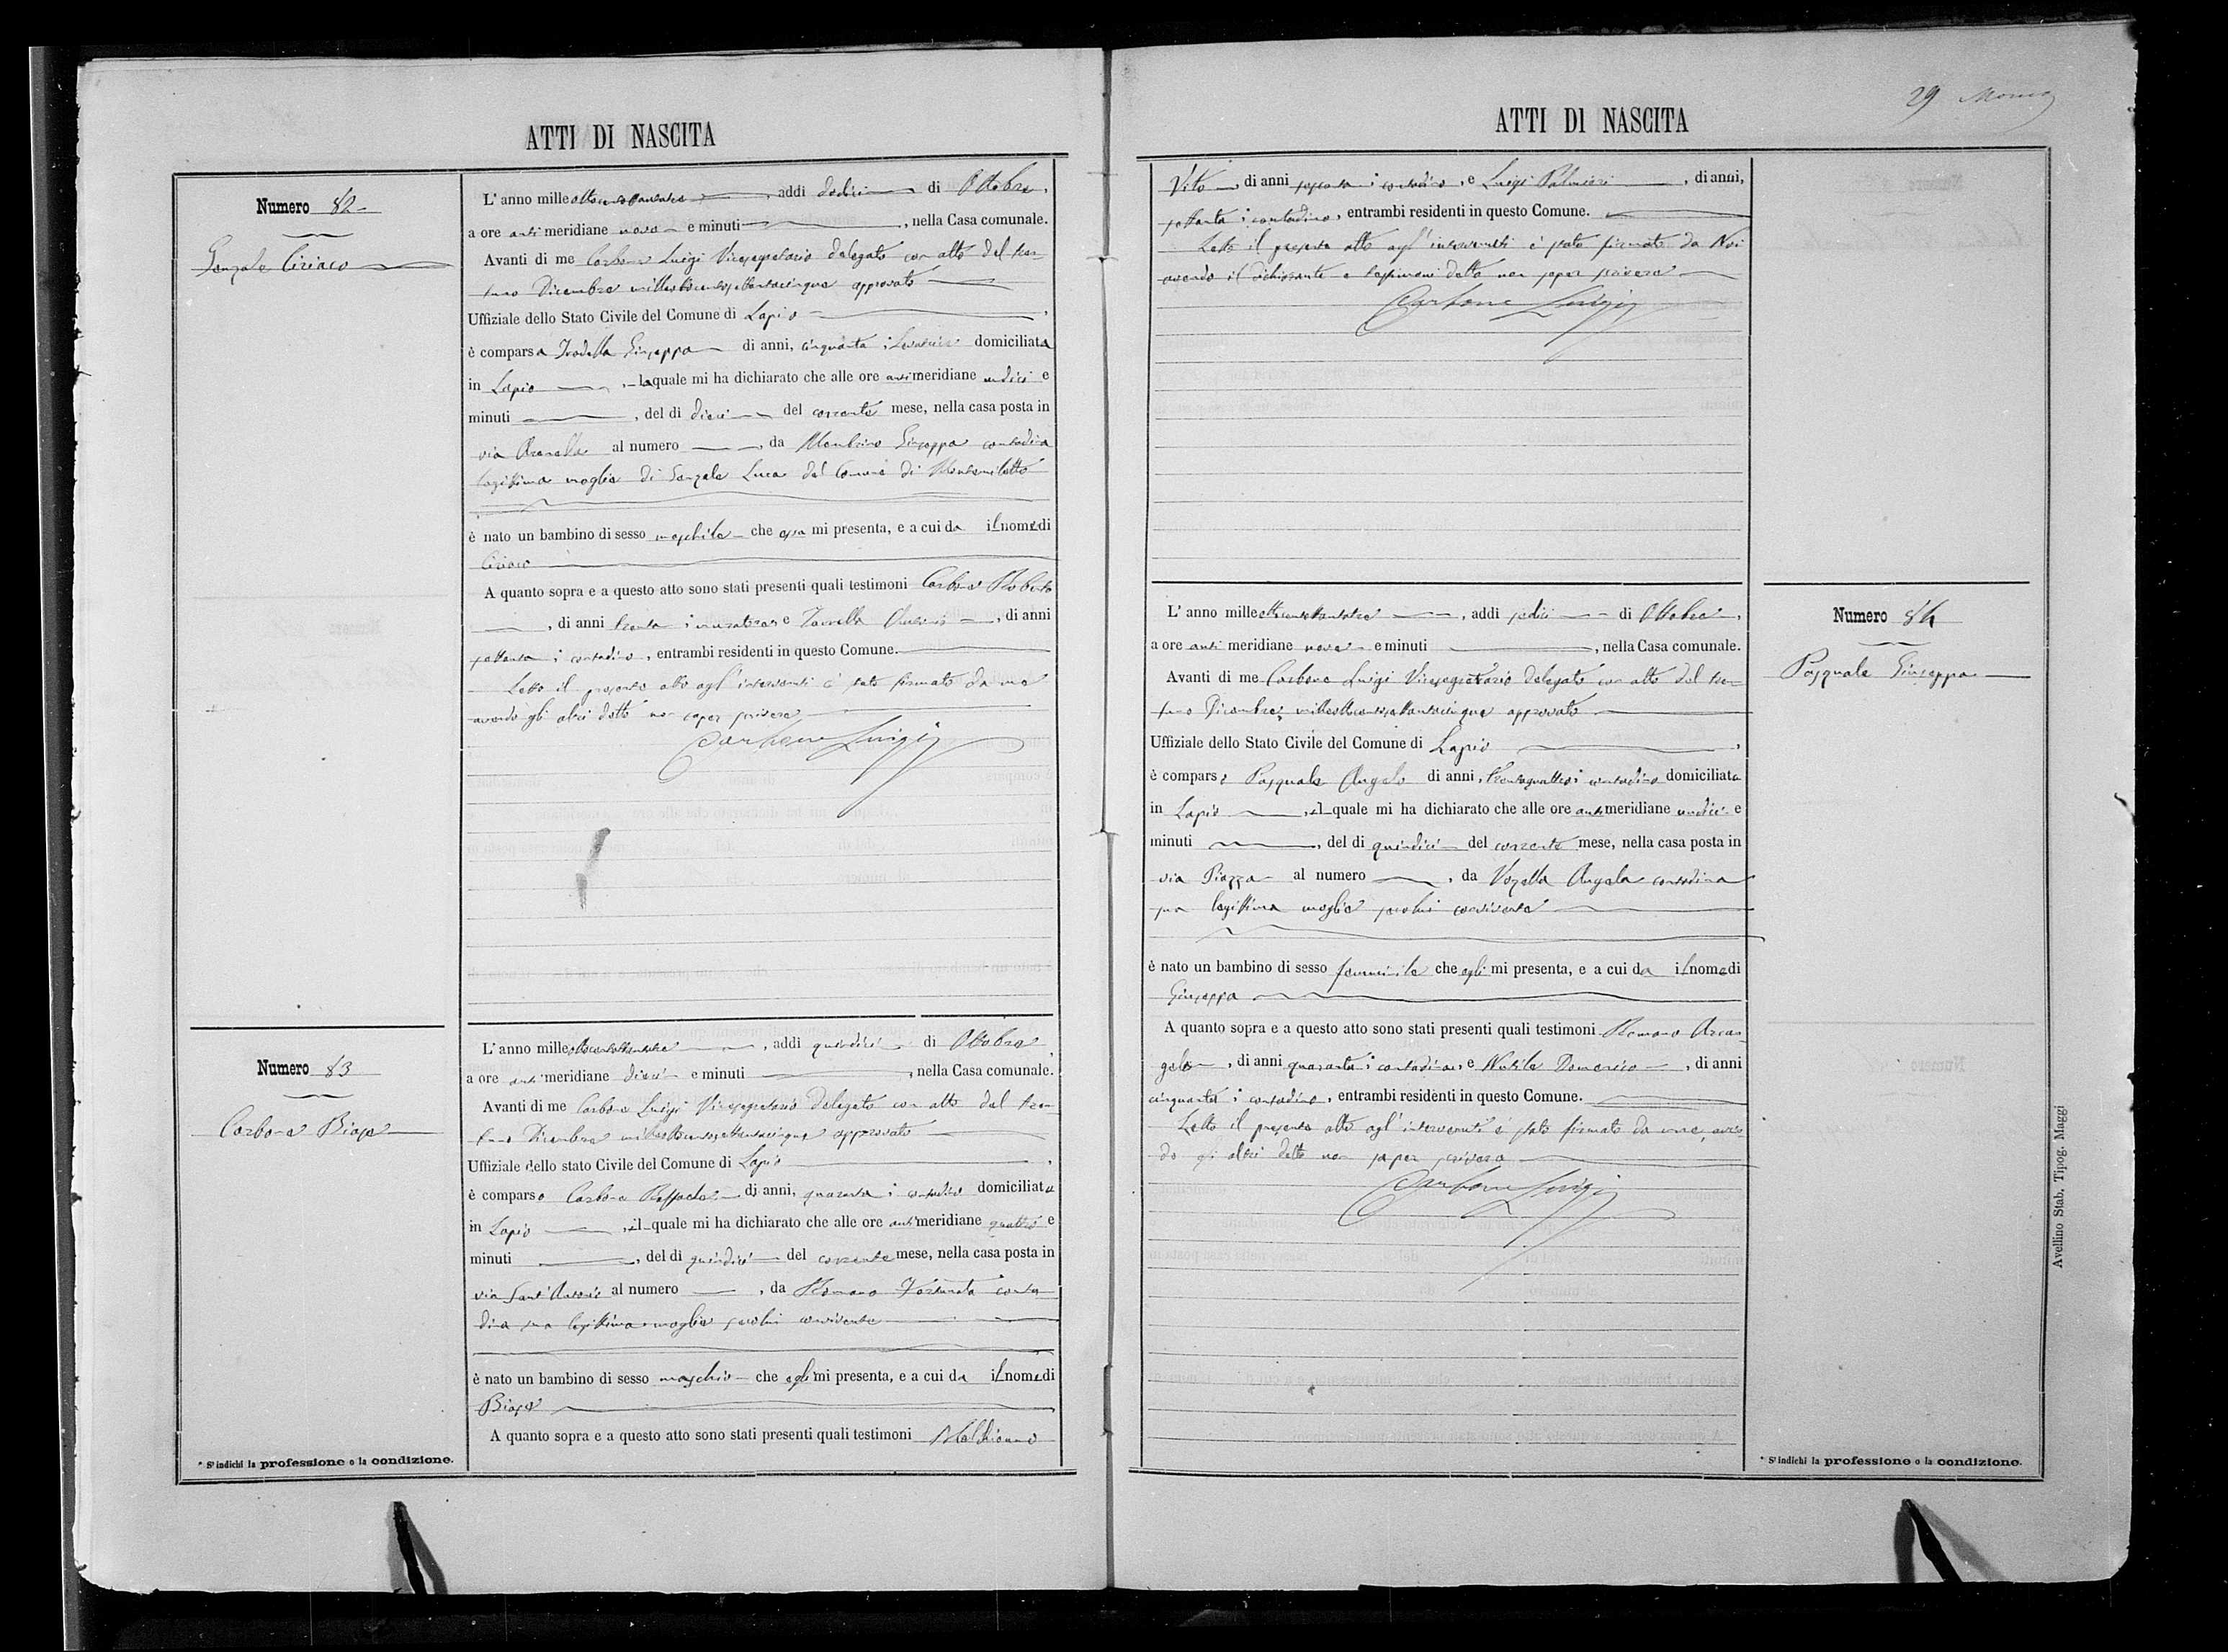 ATTI DI NASCITA
Numero 82
Genzale Ciriaco
L'anno milleottocentottantatre, addi dodici di Ottobre,
a ore anti meridiane nove e minuti, nella Casa comunale.
Avanti di me Carbone Luigi Vicesegretario delegato con atto del tren-
tuno Dicembre milleottocentosettantacinque approvato
Uffiziale dello Stato Civile del Comune di Lapio,
è comparsa Giuseppa di anni, cinquanta; domiciliata
in Lapio, la quale mi ha dichiarato che alle ore antimeridiane undici e
minuti, del di dieci del corrente mese, nella casa posta in
via al numero, da Giuseppa contadina
legittima moglie di Genzale Luca del Comune di Montemiletto
è nato un bambino di sesso maschile che essa mi presenta, e a cui da il nome di
Ciriaco
A quanto sopra e a questo atto sono stati presenti quali testimoni Carbone Roberto
, di anni trenta; muratore e, di anni
settanta; contadino, entrambi residenti in questo Comune.
Letto il presente atto agl'intervenuti è stato firmato da me
avendo gli altri detto non saper scrivere
Carbone Luigi
Numero 83
Carbone Biagio
L'anno milleottocentottantatre, addi quindici di Ottobre,
a ore anti meridiane dieci e minuti, nella Casa comunale.
Avanti di me Carbone Luigi Vicesegretario delegato con atto del tren-
tuno Dicembre milleottocentosettantacinque approvato
Uffiziale dello stato Civile del Comune di Lapio,
è comparso Carbone Raffaele di anni, quaranta; contadino domiciliato
in Lapio, il quale mi ha dichiarato che alle ore antimeridiane quattro e
minuti, del di quindici del corrente mese, nella casa posta in
via Sant'Antonio al numero, da Romano Fortunata conta-
dina sua legittima moglie secolui convivente
è nato un bambino di sesso maschio che egli mi presenta, e a cui da il nome di
Biagio
A quanto sopra e a questo atto sono stati presenti quali testimoni
* S'indichi la professione o la condizione.
29
ATTI DI NASCITA
Vito, di anni sessanta; contadino, e Luigi Palmieri, di anni,
settanta; contadino, entrambi residenti in questo Comune.
Letto il presente atto agl'intervenuti è stato firmato da Noi
avendo il dichiarante e testimoni detto non saper scrivere
Carbone Luigi
Numero 84
Pasquale Giuseppa
L'anno milleottocentottantatre, addi sedici di Ottobre,
a ore anti meridiane nove e minuti, nella Casa comunale.
Avanti di me Carbone Luigi Vicesegretario delegato con atto del tren-
tuno Dicembre milleottocentosettantacinque approvato
Uffiziale dello Stato Civile del Comune di Lapio,
è comparso Pasquale Angelo di anni, trentaquattro; contadino domiciliato
in Lapio, il quale mi ha dichiarato che alle ore antimeridiane undici e
minuti, del di quindici del corrente mese, nella casa posta in
via Piazza al numero, da Vozella Angela contadina
sua legittima moglie secolui convivente
è nato un bambino di sesso femminile che egli mi presenta, e a cui da il nome di
Giuseppa
A quanto sopra e a questo atto sono stati presenti quali testimoni Romano Arcan-
gelo, di anni quaranta; contadino, e Domenico, di anni
cinquanta; contadino, entrambi residenti in questo Comune.
Letto il presente atto agl'intervenuti è stato firmato da me, aven-
do gli altri detto non saper scrivere
Carbone Luigi
* S'indichi la professione o la condizione.
Avellino Stab. Tipog. Maggi